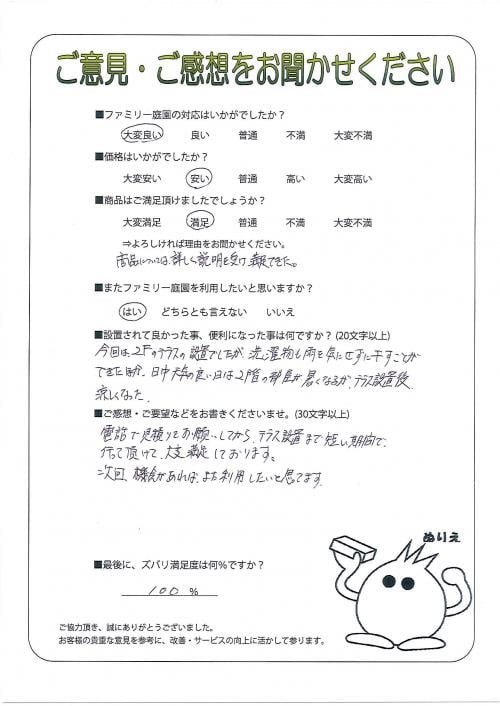 ご意見・ご感想をお聞かせください
■ファミリー庭園の対応はいかがでしたか?
大変良い 良い 普通 不満 大変不満
■価格はいかがでしたか?
大変安い 安い 普通 高い 大変高い
■商品はご満足頂けましたでしょうか?
大変満足 満足 普通 不満 大変不満
⇒よろしければ理由をお聞かせください。
商品については、詳しく説明を受け、満足できた。
■またファミリー庭園を利用したいと思いますか?
はい どちらとも言えない いいえ
■設置されて良かった事、便利になった事は何ですか?(20文字以上)
今回は、2Fのテラスの設置でしたが、洗濯物も雨を気にせずに干すことが
できたほか、日中天気の良い日は2階の部屋が暑くなるが、テラス設置後、
涼しくなった。
■ご感想・ご要望などをお書きくださいませ。(30文字以上)
電話で見積りをお願いしてから、テラス設置まで短い期間で、
行って頂けて、大変満足しております。
次回、機会があれば、また利用したいと思てます。
ぬりえ
■最後に、ズバリ満足度は何%ですか?
100 %
ご協力頂き、誠にありがとうございました。
お客様の貴重な意見を参考に、改善・サービスの向上に活かして参ります。